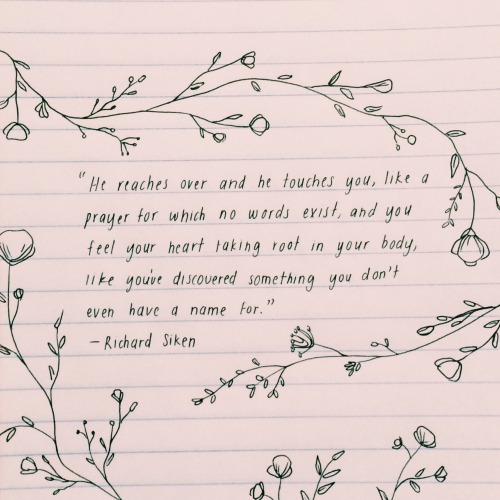 "He reaches over and he touches you, like a
prayer for which no words exist, and you
feel your heart taking root in your body,
like you've discovered something you don't
even have a name for."
—Richard Siken